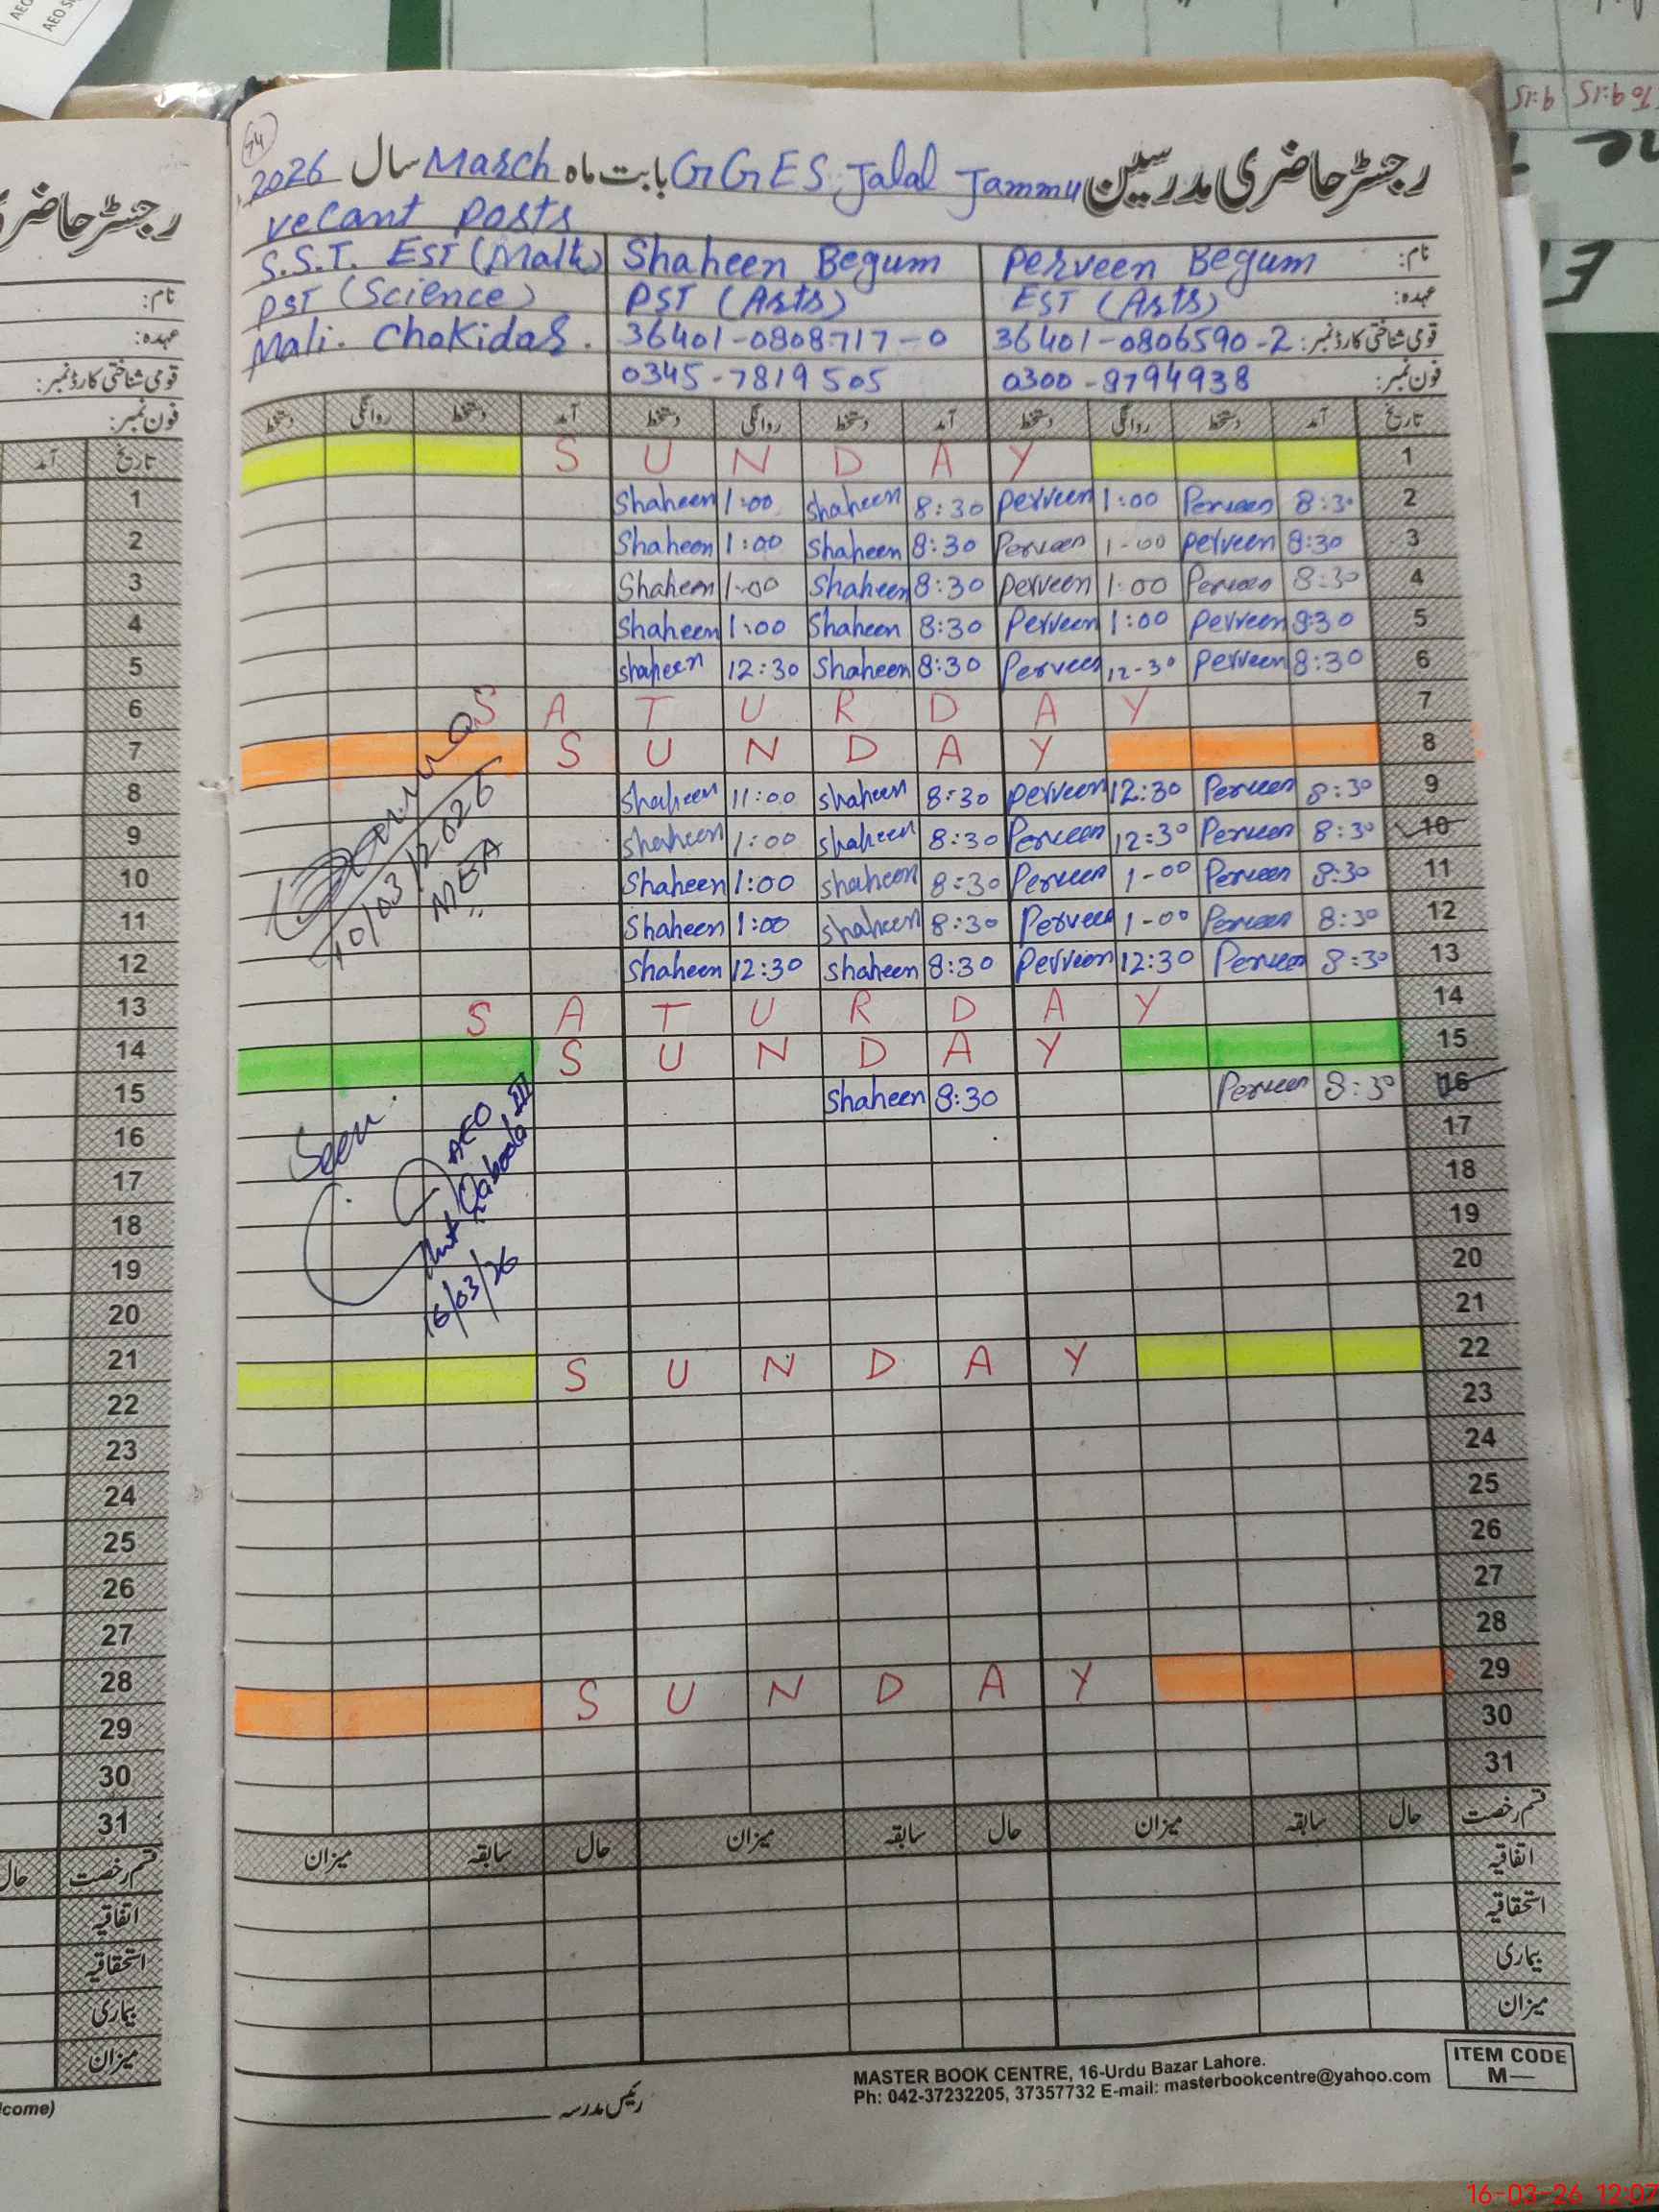 74
رجسٹر حاضری مدرسین GGES Jalal Jammu بابت ماہ March سال 2026
vecant posts
نام: Perveen Begum Shaheen Begum S.S.T. EST (Math)
عہدہ: EST (Arts) PST (Arts) PST (Science)
قومی شناختی کارڈ نمبر: 36401-0806590-2 36401-0808717-0 Mali. Chokidar.
فون نمبر: 0300-8794938 0345-7819505
تاریخ آمد دستخط روانگی دستخط آمد دستخط روانگی دستخط آمد دستخط روانگی دستخط
1 SUNDAY
2 8:30 Perveen 1:00 Perveen 8:30 Shaheen 1:00 Shaheen
3 8:30 Perveen 1-00 Perveen 8:30 Shaheen 1:00 Shaheen
4 8:30 Perveen 1:00 Perveen 8:30 Shaheen 1:00 Shaheen
5 8:30 Perveen 1:00 Perveen 8:30 Shaheen 1:00 Shaheen
6 8:30 Perveen 12-30 Perveen 8:30 Shaheen 12:30 Shaheen
7 SATURDAY
8 SUNDAY
9 8:30 Perveen 12:30 Perveen 8:30 Shaheen 11:00 Shaheen
10 8:30 Perveen 12:30 Perveen 8:30 Shaheen 1:00 Shaheen
11 8:30 Perveen 1-00 Perveen 8:30 Shaheen 1:00 Shaheen
12 8:30 Perveen 1-00 Perveen 8:30 Shaheen 1:00 Shaheen
13 8:30 Perveen 12:30 Perveen 8:30 Shaheen 12:30 Shaheen
10/03/2026
MEA
14 SATURDAY
15 SUNDAY
16 8:30 Perveen 8:30 Shaheen
Seen.
AEO
III
16/03/26
17
18
19
20
21
22 SUNDAY
23
24
25
26
27
28
29 SUNDAY
30
31
قسم رخصت حال سابقہ میزان حال سابقہ میزان حال سابقہ میزان
اتفاقیہ
استحقاقیہ
بیماری
میزان
رئیس مدرسہ
MASTER BOOK CENTRE, 16-Urdu Bazar Lahore.
Ph: 042-37232205, 37357732 E-mail: masterbookcentre@yahoo.com
ITEM CODE
M—
رجسٹر حاضری
نام:
عہدہ:
قومی شناختی کارڈ نمبر:
فون نمبر:
تاریخ آمد
1
2
3
4
5
6
7
8
9
10
11
12
13
14
15
16
17
18
19
20
21
22
23
24
25
26
27
28
29
30
31
قسم رخصت حال
اتفاقیہ
استحقاقیہ
بیماری
میزان
come)
To 9:15 9:15
16-03-26 12:07